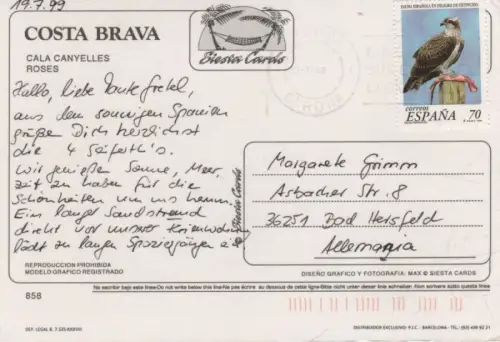 19.7.99
COSTA BRAVA
CALA CANYELLES
ROSES
Siesta Cards
FAUNA ESPAÑOLA EN PELIGRO DE EXTINCION
correos
ESPAÑA 70
Hallo, liebe Tante Gretel,
aus dem sonnigen Spanien
grüßen Dich herzlichst
die 4 Seifert's.
Wir genießen Sonne, Meer,
Zeit zu haben für die
Schönheiten um uns herum.
Ein langer Sandstrand
direkt vor unserer Ferienwohnung
lädt zu langen Spaziergängen ein
Siesta Cards
Margarete Grimm
Asbacher Str. 8
36251 Bad Hersfeld
Allemania
REPRODUCCION PROHIBIDA
MODELO GRAFICO REGISTRADO
DISEÑO GRAFICO Y FOTOGRAFIA: MAX © SIESTA CARDS
858
No escribir bajo esta línea-Do not write below this line-Ne pas écrire au dessous de cette ligne-Bitte nicht unter dieser linie schreiben-Non scrivere sotto questa linea
DISTRIBUIDOR EXCLUSIVO: P.I.C. BARCELONA